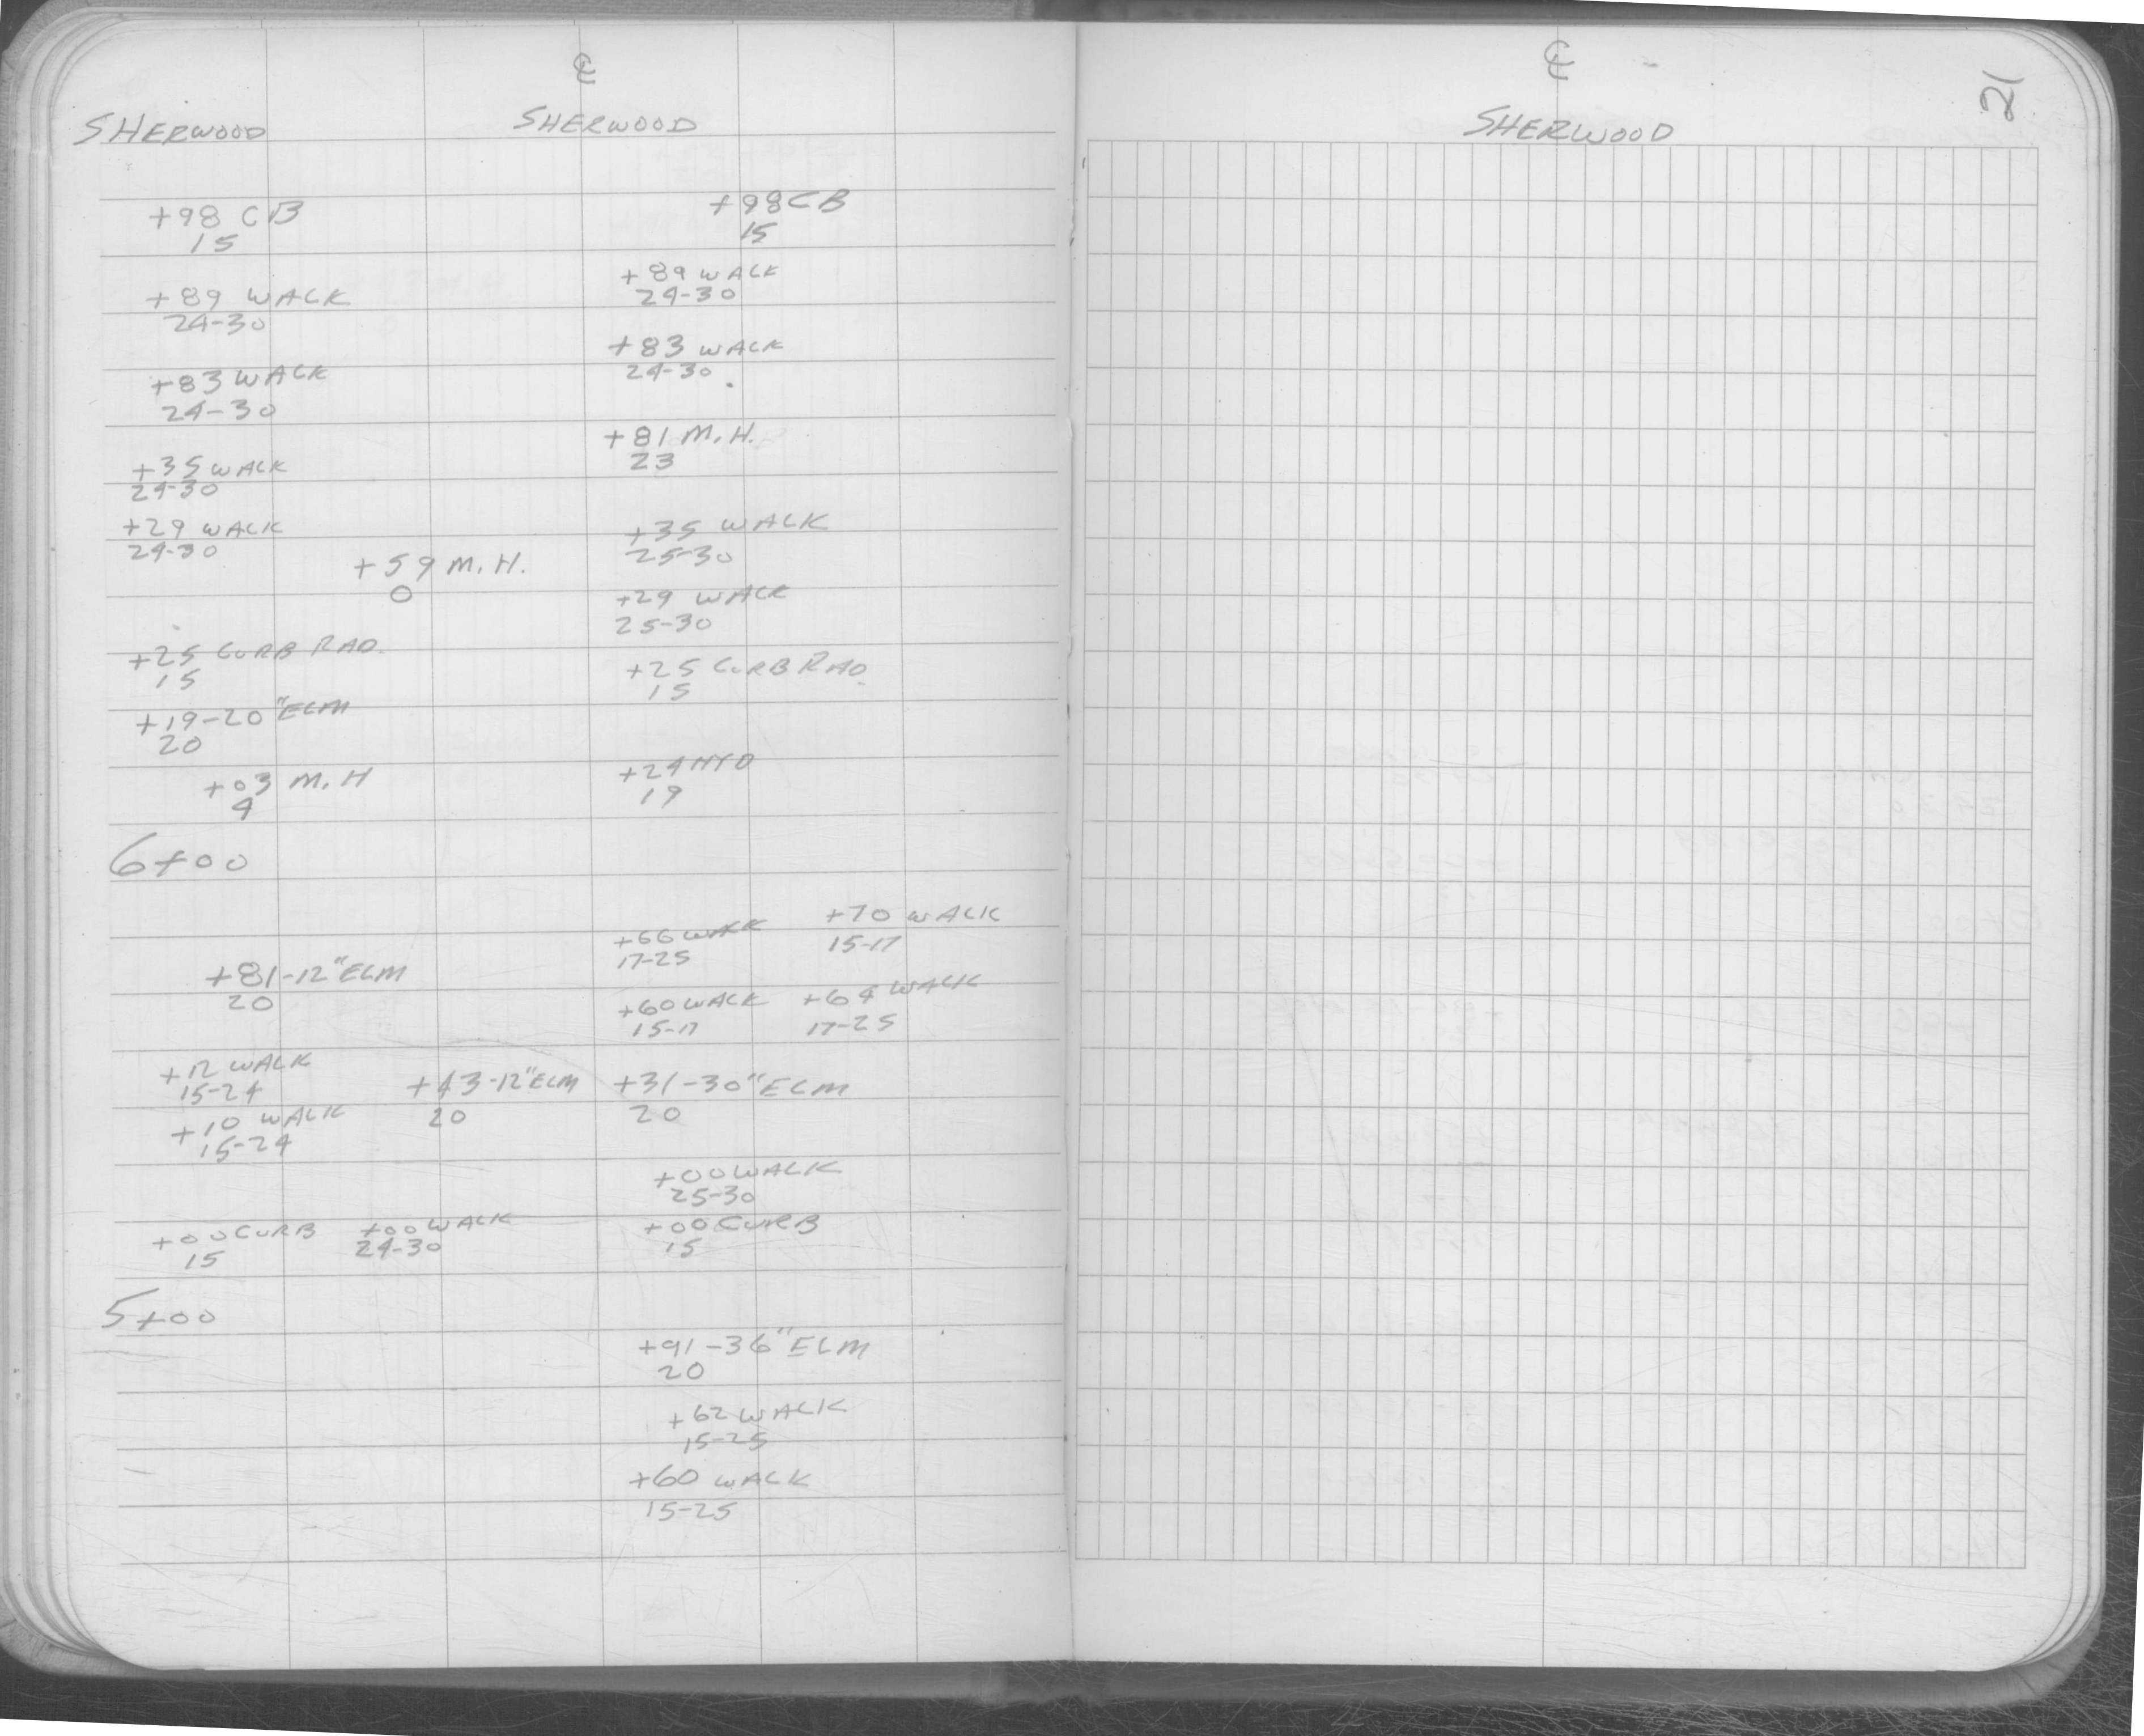 ℄
SHERWOOD SHERWOOD
+98 CB +98 CB
15 15
+89 WALK +89 WALK
24-30 24-30
+83 WALK +83 WALK
24-30 24-30
+81 M.H.
23
+35 WALK
24-30
+29 WALK +35 WALK
24-30 25-30
+59 M.H.
0
+29 WALK
25-30
+25 CURB RAD. +25 CURB RAD.
15 15
+19-20" ELM
20
+03 M.H +24 HYD
4 19
6+00
+66 WALK +70 WALK
17-25 15-17
+81-12" ELM
20
+60 WALK +64 WALK
15-17 17-25
+12 WALK
15-24
+43-12" ELM +31-30" ELM
20 20
+10 WALK
15-24
+00 WALK
25-30
+00 CURB +00 WALK +00 CURB
15 24-30 15
5+00
+91-36" ELM
20
+62 WALK
15-25
+60 WALK
15-25
℄
21
SHERWOOD